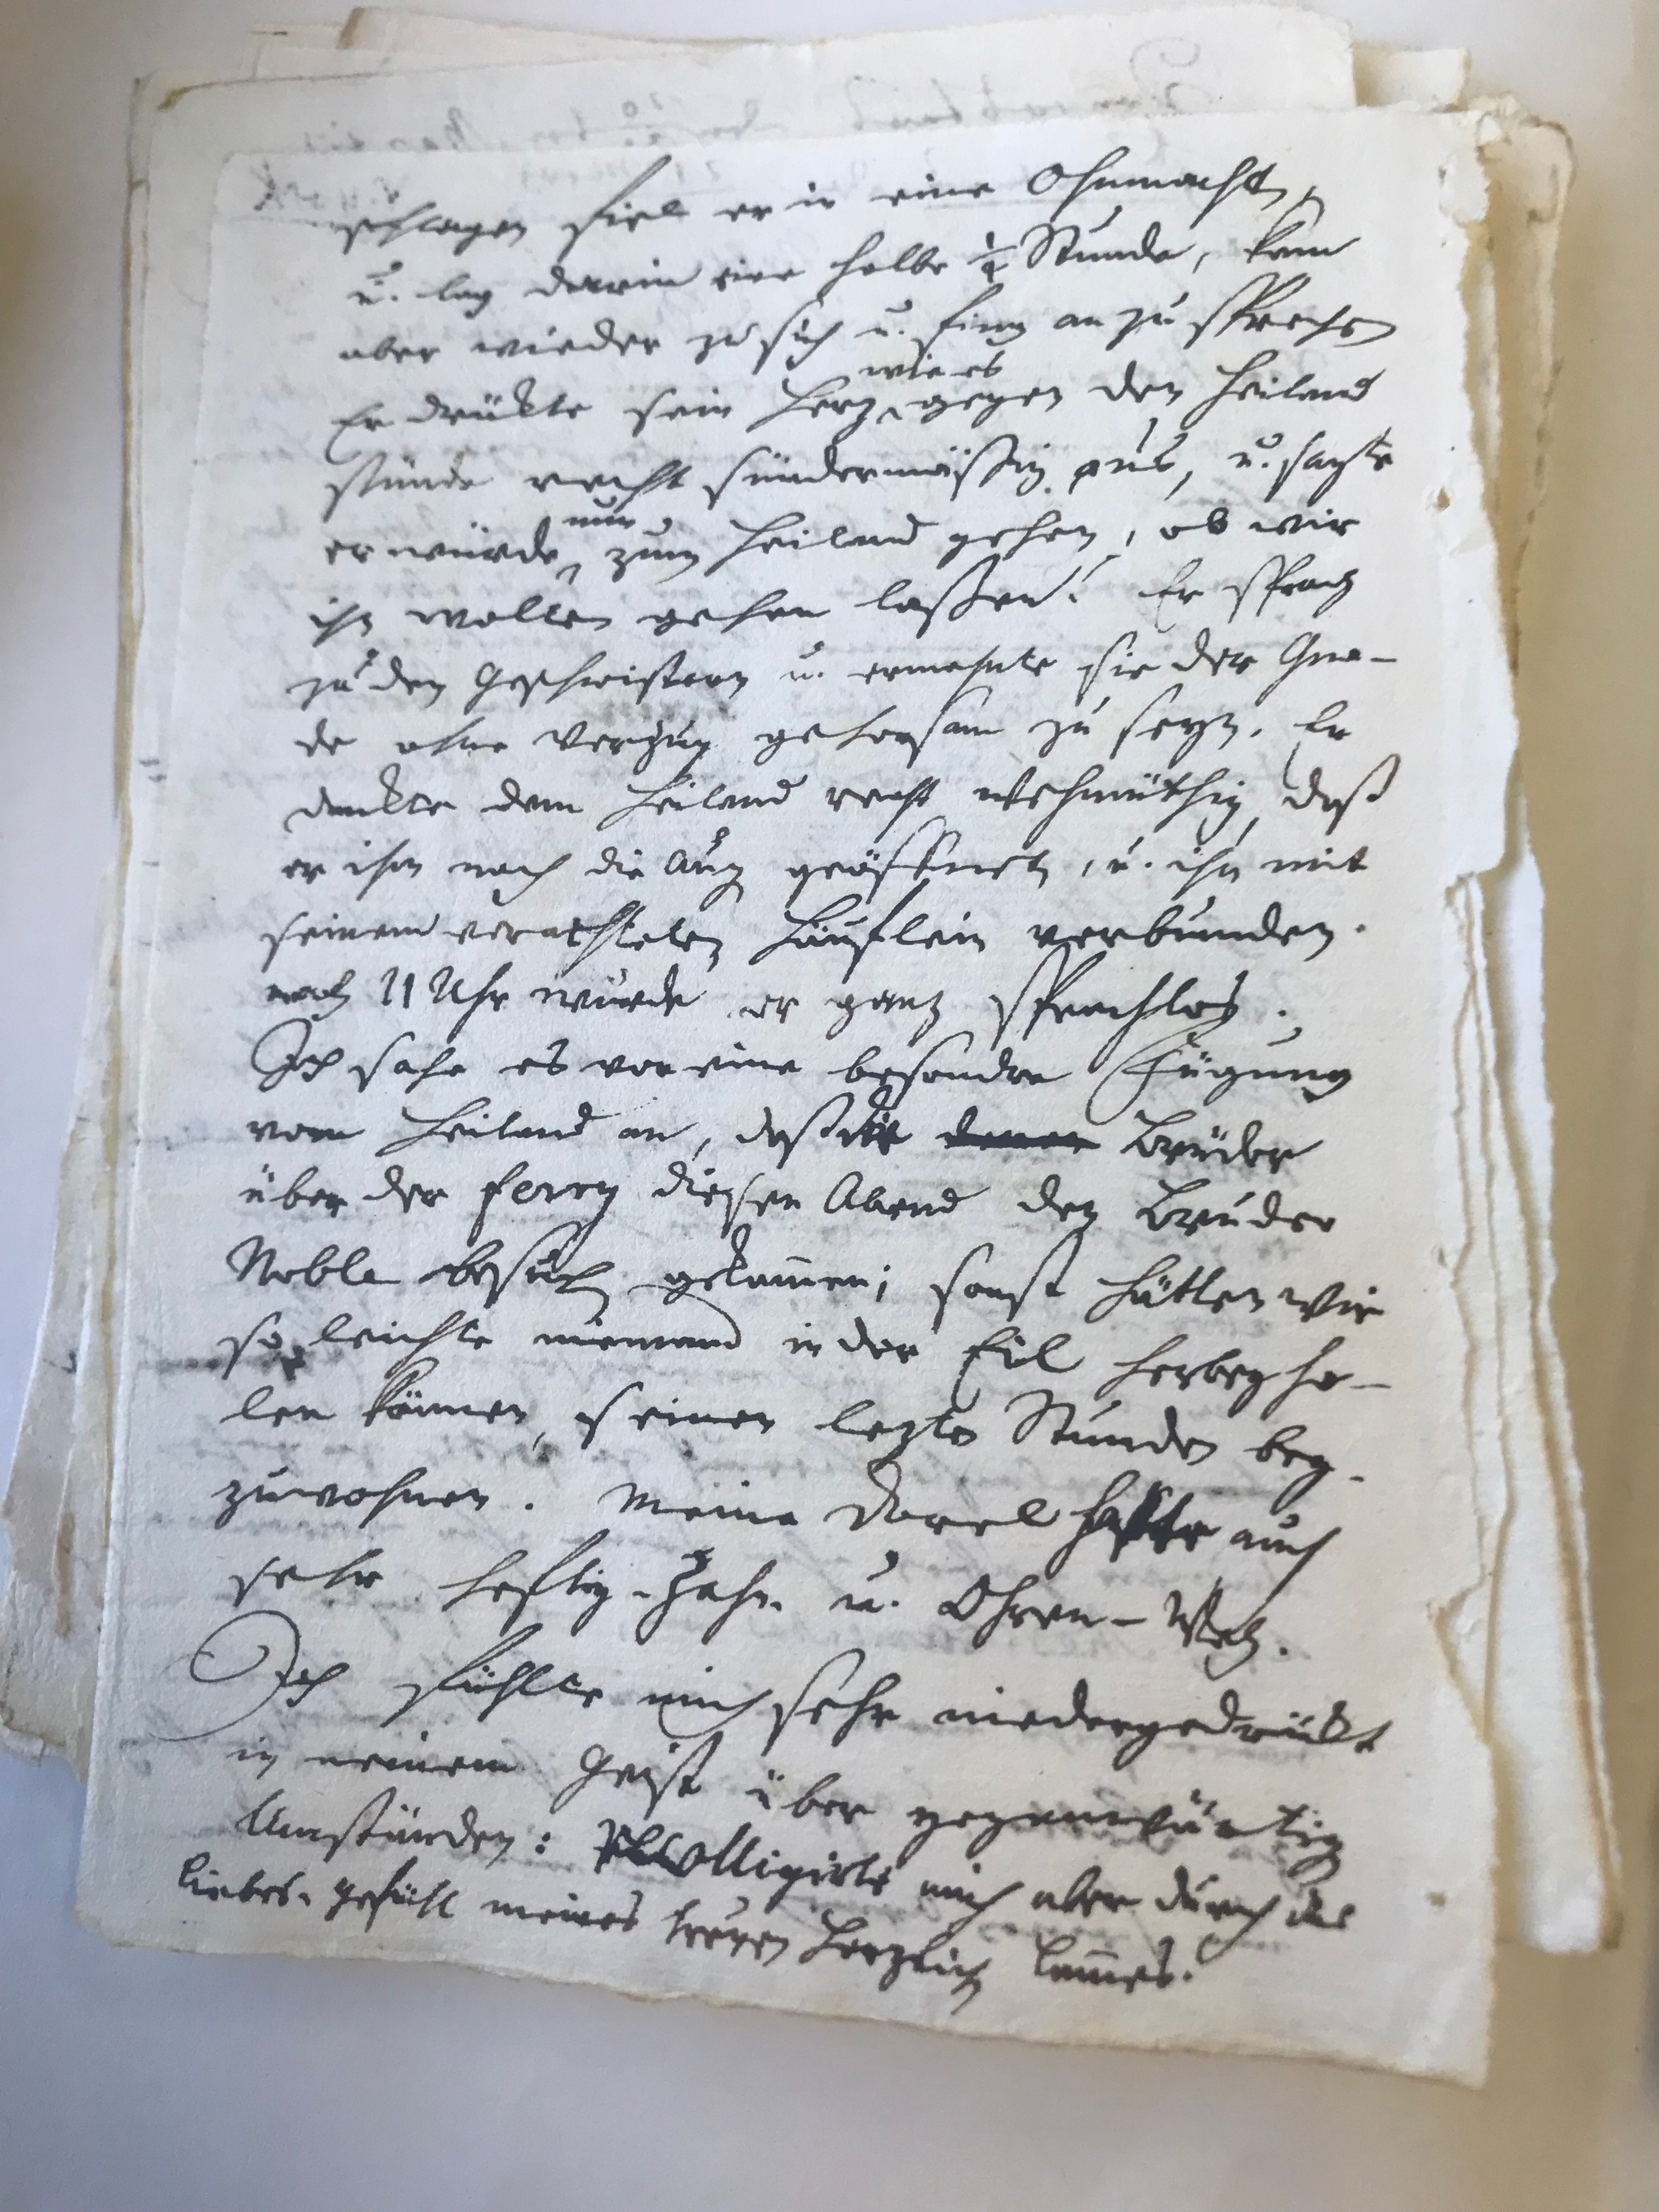 schlagen fiel er in eine Ohnmacht,
u. lag darin eine halbe ¼ Stunde, kam
aber wieder zu sich u. fing an zu sprechen
Er drükte sein Herz wie es gegen den Heiland
stünde recht sündermäßig aus, u. sagte
er würde nun zum Heiland gehen, ob wir
ihn wollten gehen laßen? Er sprach
zu den Geschwistern u. ermahnte sie der Gna-
de ohne Verzug gehorsam zu seyn. Er
dankte dem Heiland recht wehmüthig, daß
er ihm noch die Augen geöffnet, u. ihn mit
seinem verachteten Häuflein verbunden.
nach 11 Uhr wurde er ganz sprachlos.
Ich sahe es vor eine besondre Fügung
vom Heiland an, daß die Brüder
über der ferry diesen Abend den Bruder
Noble besuchen gekom̄en; sonst hätten wir
so leichte niemand in der Eil herbey ho-
len können, seinen lezten Stunden bey-
zuwohnen. Meine Dorel hatte auch
sehr heftig Zahn u. Ohren-Weh.
Ich fühlte mich sehr niedergedrükt
in meinem Geist über gegenwärtigen
Umständen: colligirte mich aber durch das
Liebes-Gefühl meines treuen Herzlich Lam̄es.